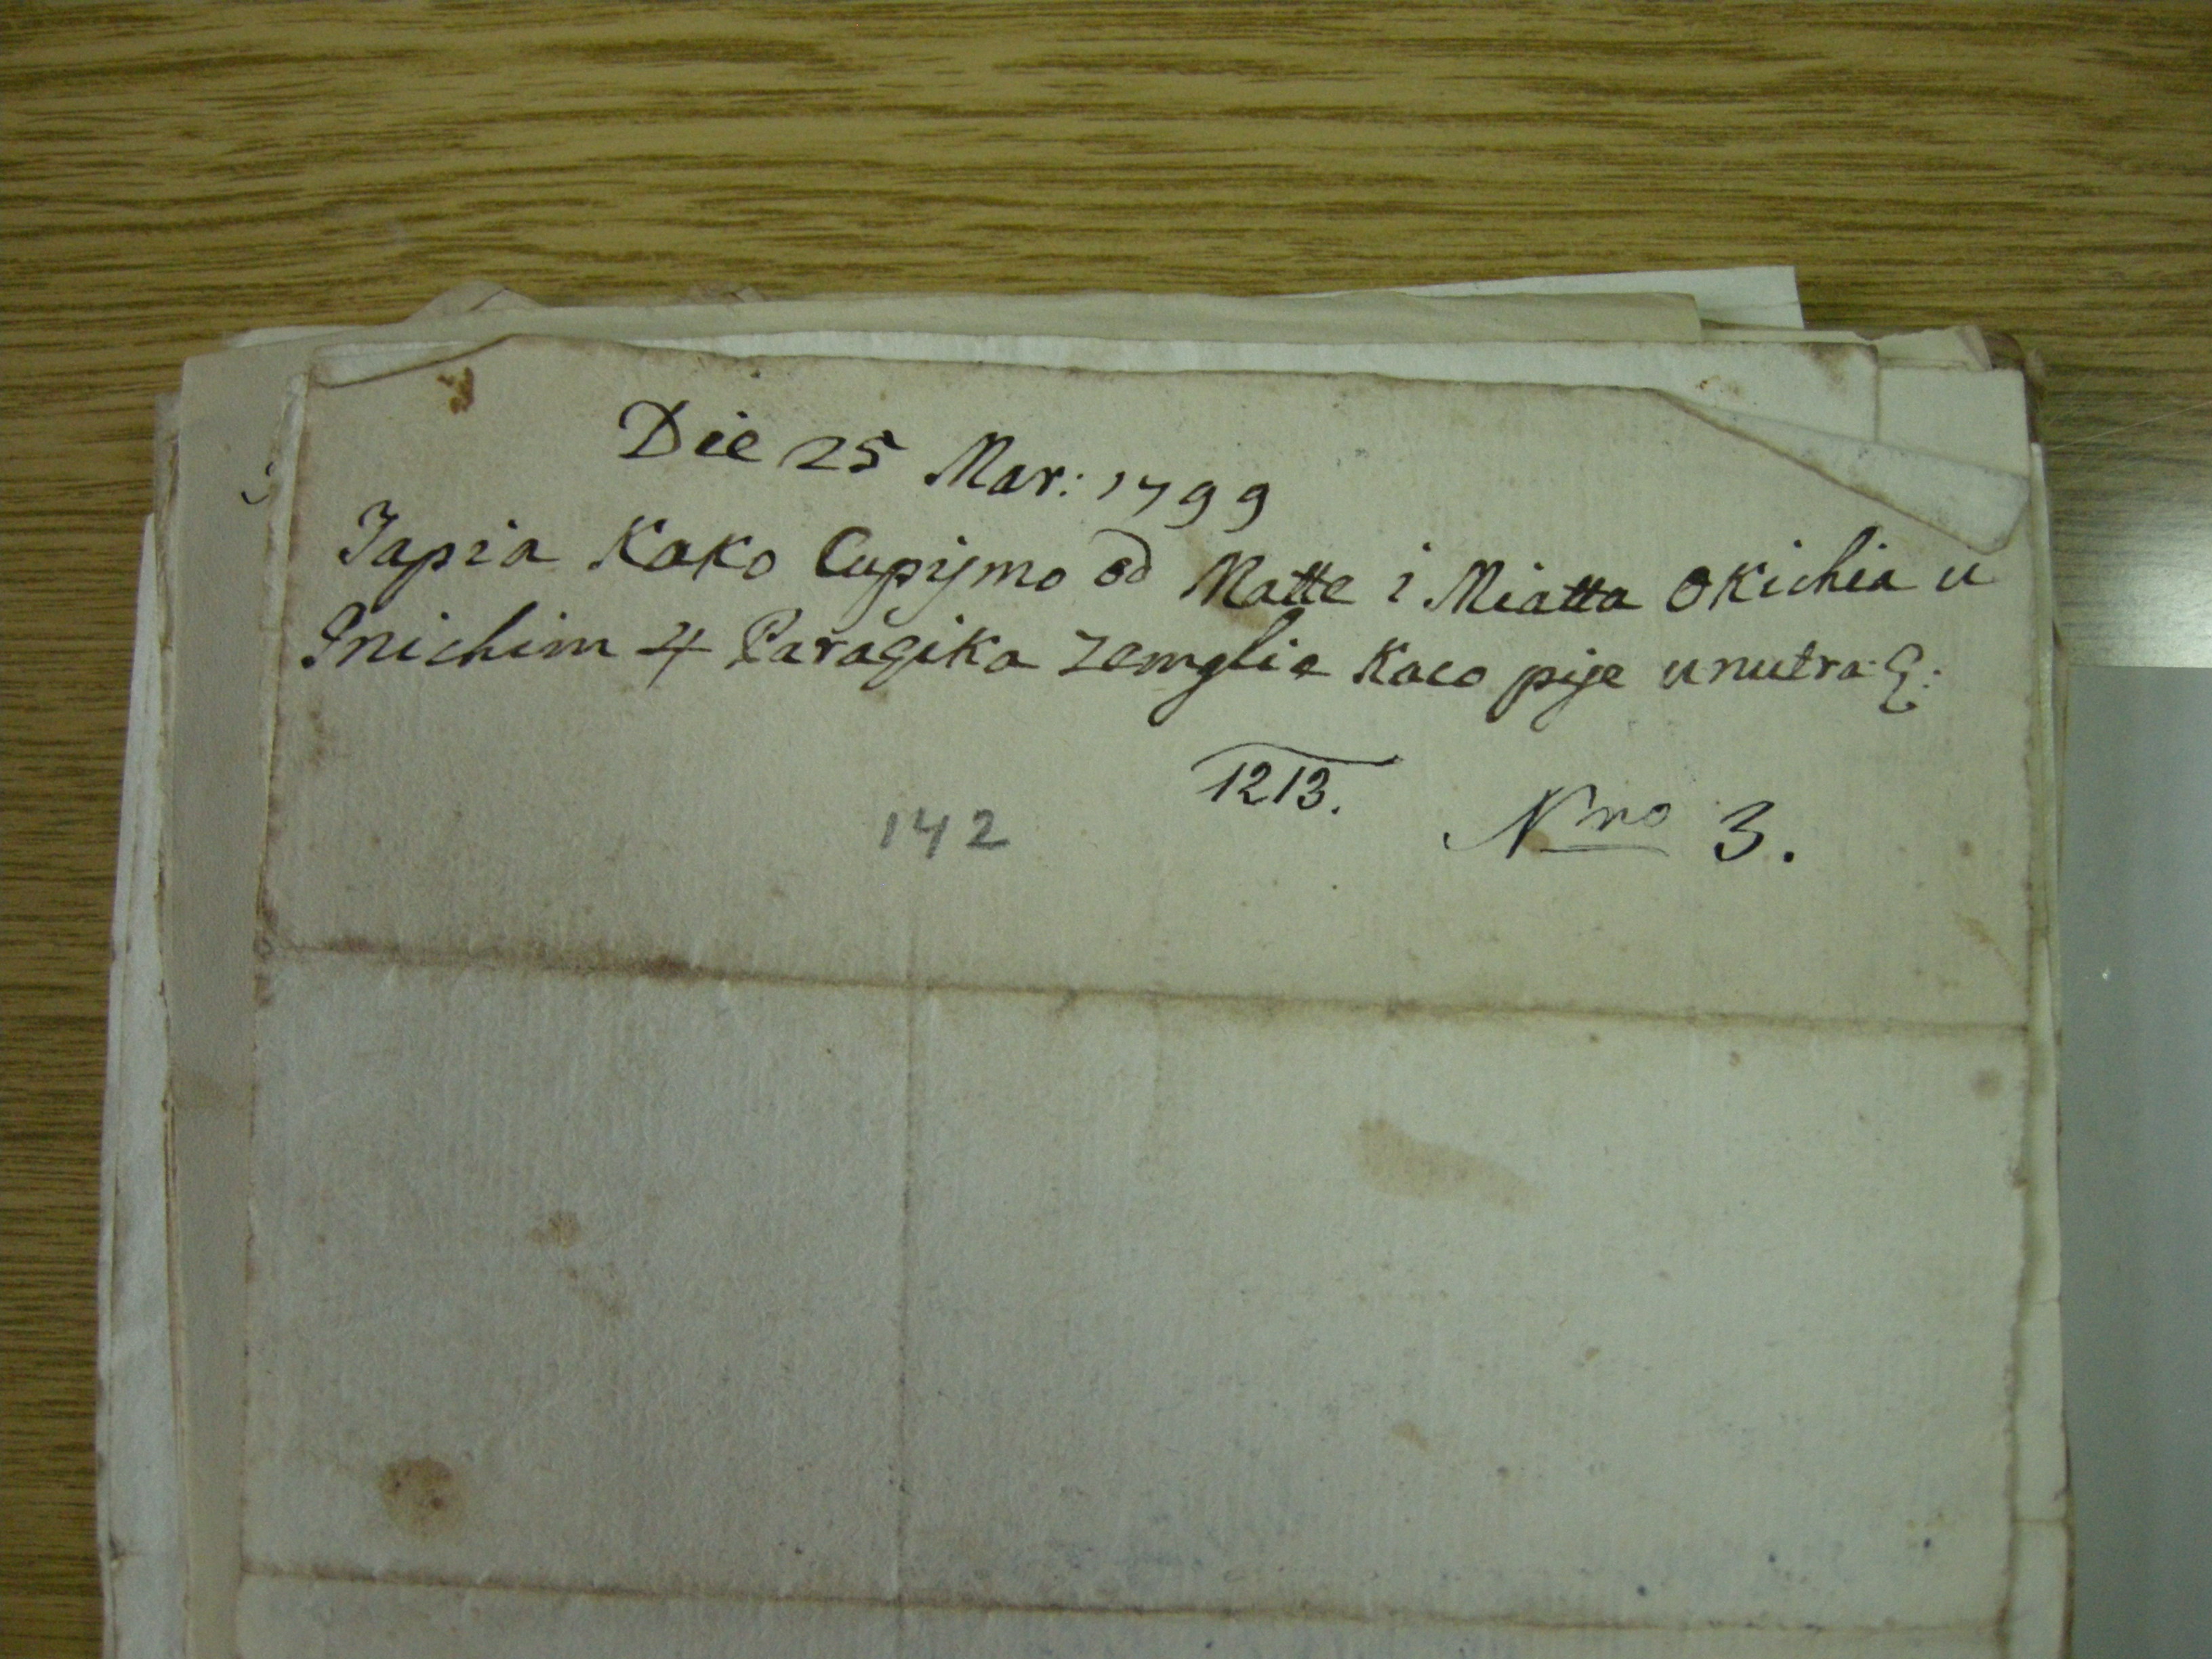 Die 25 Mar: 1799
Japia Kako Cupijmo od Matte i Miatta Okichia u
Snichim 4 Paragika zemglie Kaco pije unutra &:
1213.
142 Nro 3.